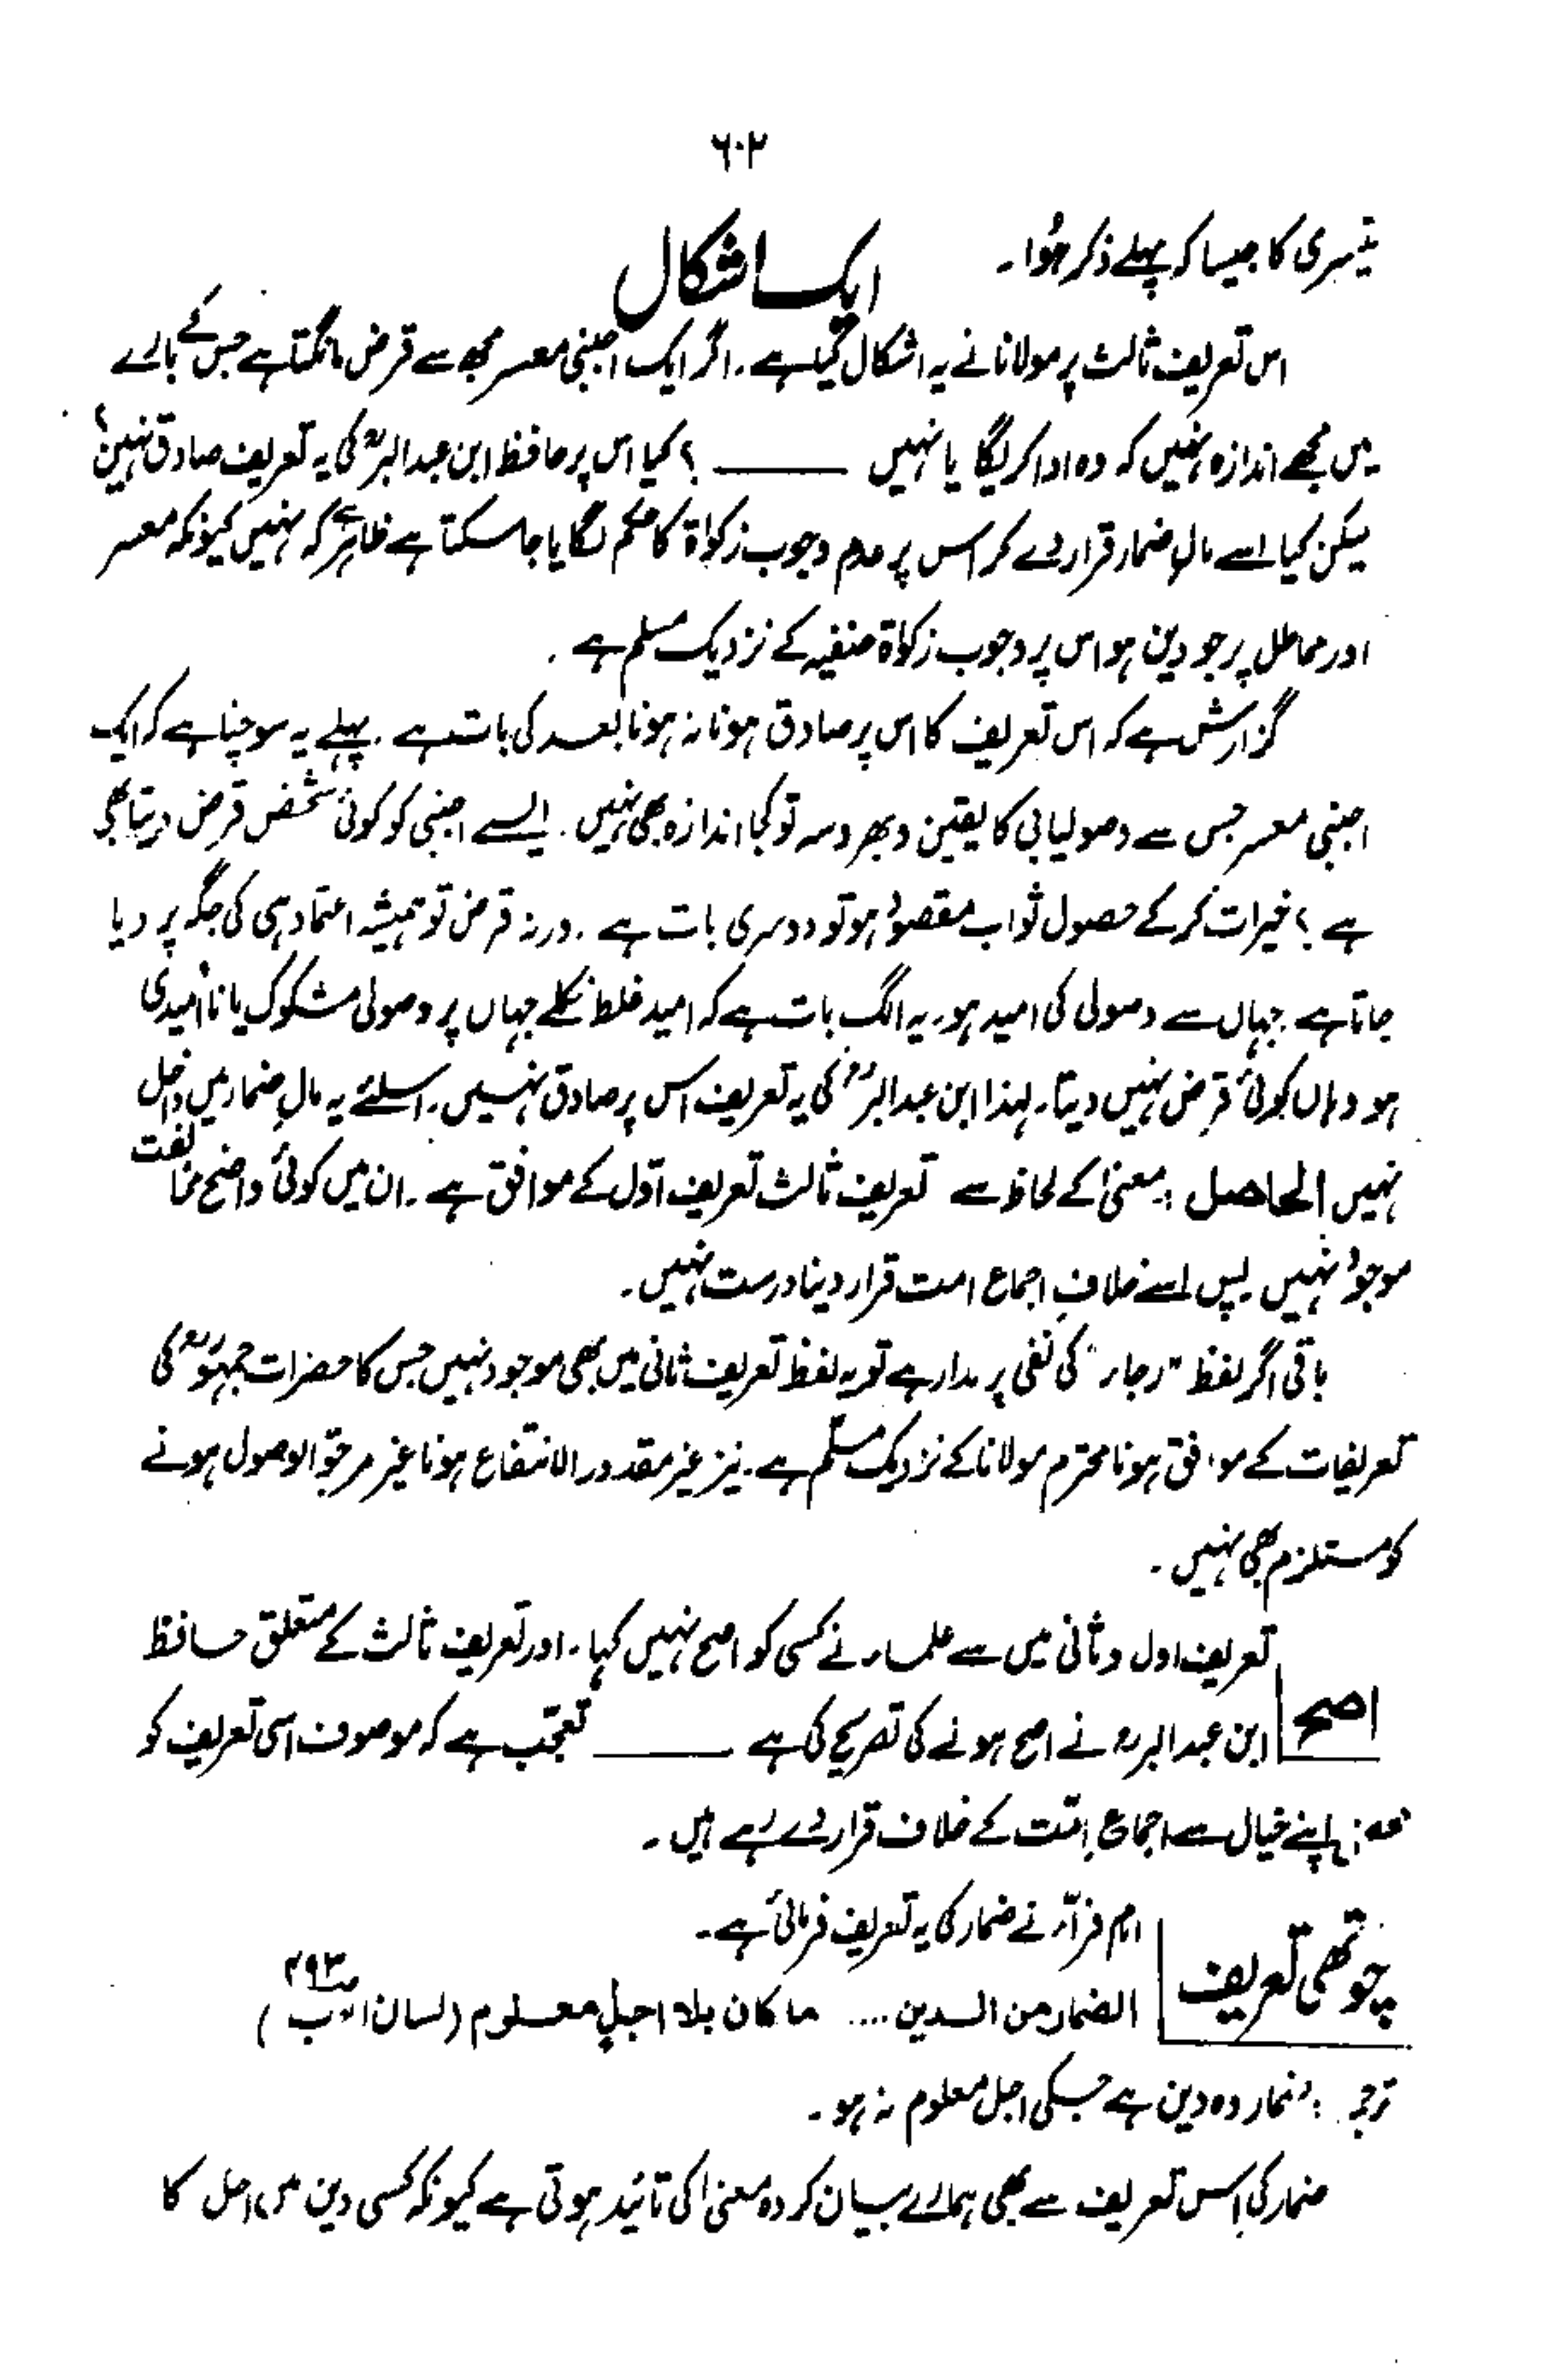 ٦٠٢
تیسری کا جیسا کہ پہلے ذکر ہُوا۔
ایک اشکال
اس تعریف ثالث پر مولانا نے یہ اشکال کیا ہے۔ اگر ایک اجنبی معسر مجھ سے قرض مانگتا ہے جس کے بارے
میں مجھے اندازہ نہیں کہ وہ ادا کریگا یا نہیں ——— ؟ کیا اس پر حافظ ابن عبد البرؒ کی یہ تعریف صادق نہیں؟
لیکن کیا اسے مالِ ضمار قرار دے کر اس پر عدم وجوب زکواۃ کا حکم لگایا جا سکتا ہے ظاہر ہے کہ نہیں کیونکہ معسر
اور مماطل پر جو دین ہو اس پر وجوب زکواۃ حنفیہ کے نزدیک مسلم ہے ۔
گزارش ہے کہ اس تعریف کا اس پر صادق ہونا نہ ہونا بعد کی بات ہے ۔ پہلے یہ سوچنا ہے کہ ایک
اجنبی معسر جس سے وصولیابی کا یقین و بھروسہ تو کجا اندازہ بھی نہیں ۔ ایسے اجنبی کو کوئی شخص قرض دیتا بھی
ہے ؟ خیرات کر کے حصول ثواب مقصود ہو تو دوسری بات ہے ۔ ورنہ قرض تو ہمیشہ اعتماد ہی کی جگہ پر دیا
جاتا ہے جہاں سے وصولی کی امید ہو۔ یہ الگ بات ہے کہ امید غلط نکلے جہاں پر وصولی مشکوک یا نا اُمیدی
ہو وہاں کوئی قرض نہیں دیتا۔ لہذا ابن عبد البرؒ کی یہ تعریف اس پر صادق نہیں۔ اسلئے یہ مالِ ضمار میں داخل
نہیں الحاصل : معنیٰ کے لحاظ سے تعریف ثالث تعریف اوّل کے موافق ہے ۔ ان میں کوئی واضح مخالفت
موجود نہیں ۔ پس اسے خلافِ اجماع امت قرار دینا درست نہیں ۔
باقی اگر لفظ "رجاء" کی نفی پر مدار ہے تو یہ لفظ تعریف ثانی میں بھی موجود نہیں جس کا حضرات جمہورؒ کی
تعریفات کے موافق ہونا محترم مولانا کے نزدیک مسلّم ہے ۔ نیز غیر مقدور الانتفاع ہونا غیر مرجوّ الوصول ہونے
کو مستلزم بھی نہیں ۔
تعریف اول و ثانی میں سے علماء نے کسی کو اصح نہیں کہا ۔ اور تعریف ثالث کے متعلق حافظ
اصح
ابن عبد البرؒ نے اصح ہونے کی تصریح کی ہے ——— تعجّب ہے کہ موصوف اسی تعریف کو
اپنے خیال سے اجماعِ امّت کے خلاف قرار دے رہے ہیں ۔
چوتھی تعریف
امام فرّاء نے ضمار کی یہ تعریف فرمائی ہے ۔
الضمار من الدین .... ما کان بلا اجلٍ معلوم (لسان العرب ص۴۹۳)
ترجمہ : ضمار وہ دین ہے جسکی اجل معلوم نہ ہو ۔
ضمار کی اِس تعریف سے بھی ہمارے بیان کردہ معنیٰ کی تائید ہوتی ہے کیونکہ کسی دین میں اجل کا